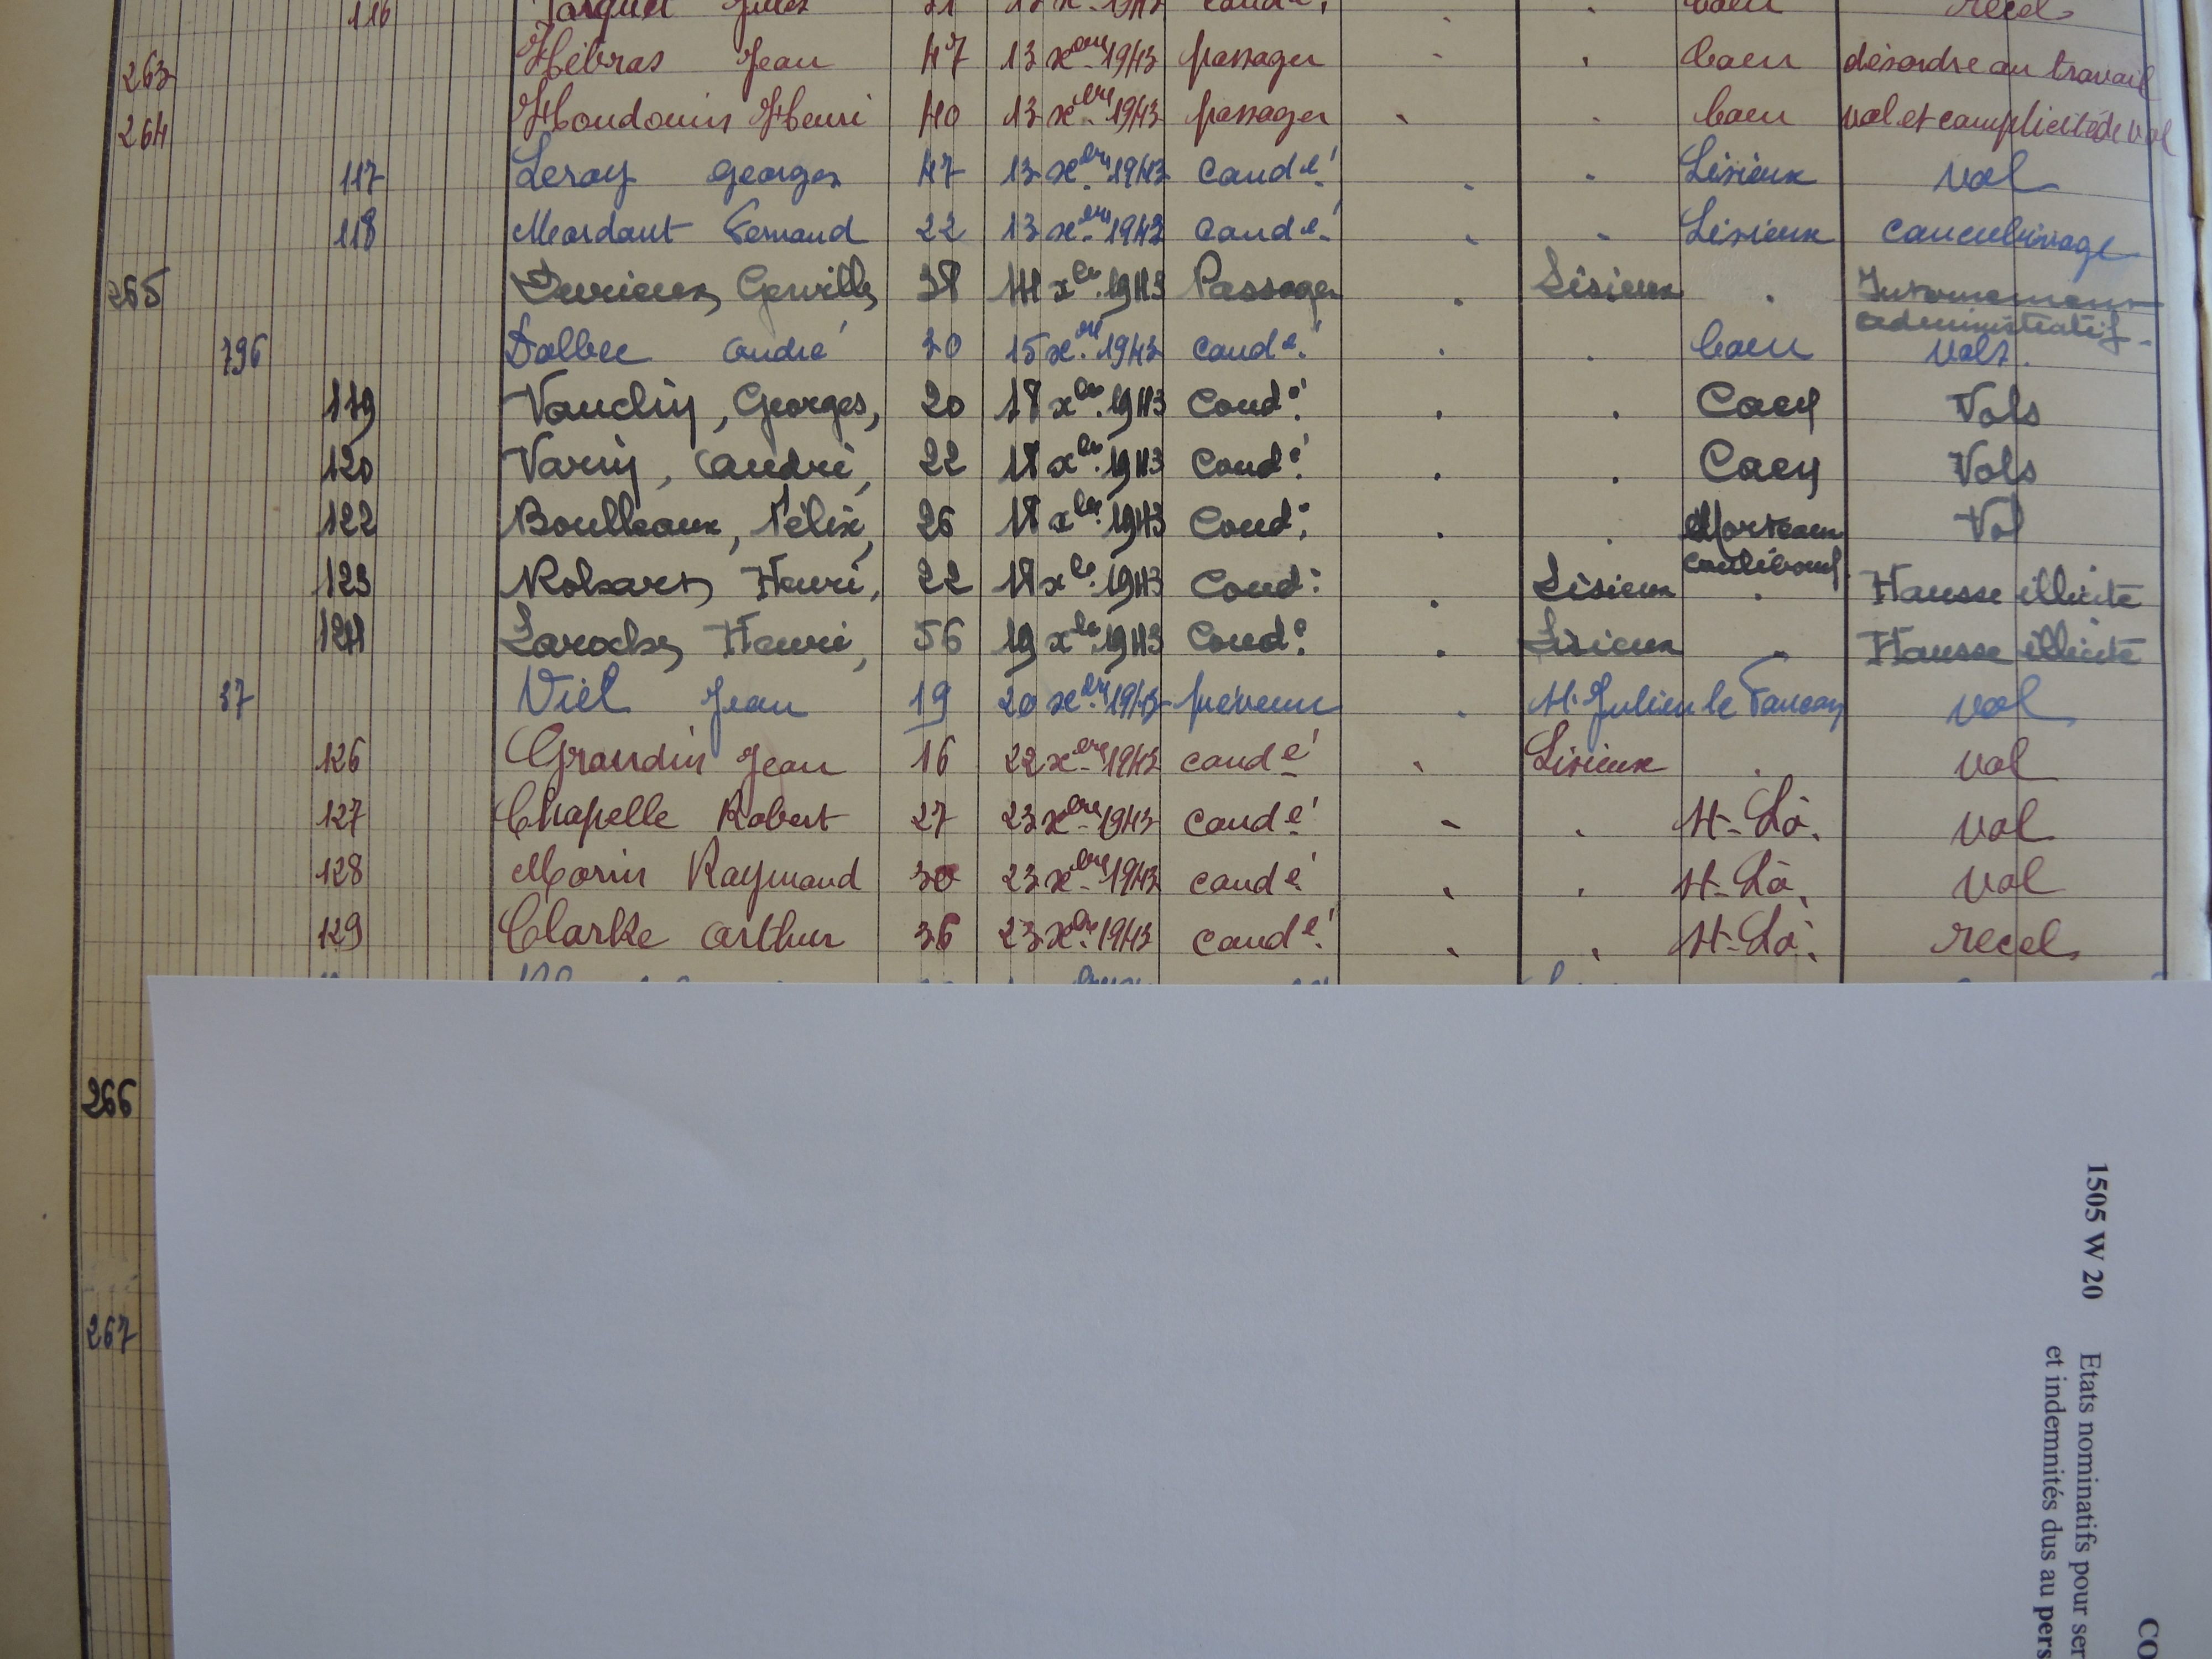 116 Jules 13 1943 cond.é Caen recel
263 Hébras Jean 47 13 xbre 1943 passager Caen désordre au travail
264 Houdouin Henri 40 13 xbre 1943 passager Caen vol et complicité de vol
117 Leroy Georges 47 13 xbre 1943 cond.é Lisieux vol
118 Mordant Fernand 22 13 xbre 1943 cond.é Lisieux concubinage
265 38 14 xbre 1943 Passager Lisieux Internement
administratif
796 Dolbec André 30 15 xbre 1943 cond.é Caen vols.
119 Vauclin, Georges, 20 18 xbre 1943 Cond.é Caen Vols
120 Varin, André, 22 18 xbre 1943 Cond.é Caen Vols
122 Boulleaux, Félix, 26 18 xbre 1943 Cond.é Morteaux Vol
Coulibœuf
123 Henri, 22 18 xbre 1943 Cond.é Lisieux Hausse illicite
124 Laroche, Henri, 56 19 xbre 1943 Cond.é Lisieux Hausse illicite
37 Viel Jean 19 20 xbre 1943 prévenu St. Julien le Faucon vol
126 Grandin Jean 16 22 xbre 1943 cond.é Lisieux vol
127 Chapelle Robert 27 23 xbre 1943 cond.é St-Lô. vol
128 Morin Raymond 30 23 xbre 1943 cond.é St-Lô. vol
129 Clarke Arthur 36 23 xbre 1943 cond.é St-Lô. recel
266
267
1505 W 20 Etats nominatifs pour ser
et indemnités dus au pers
CO